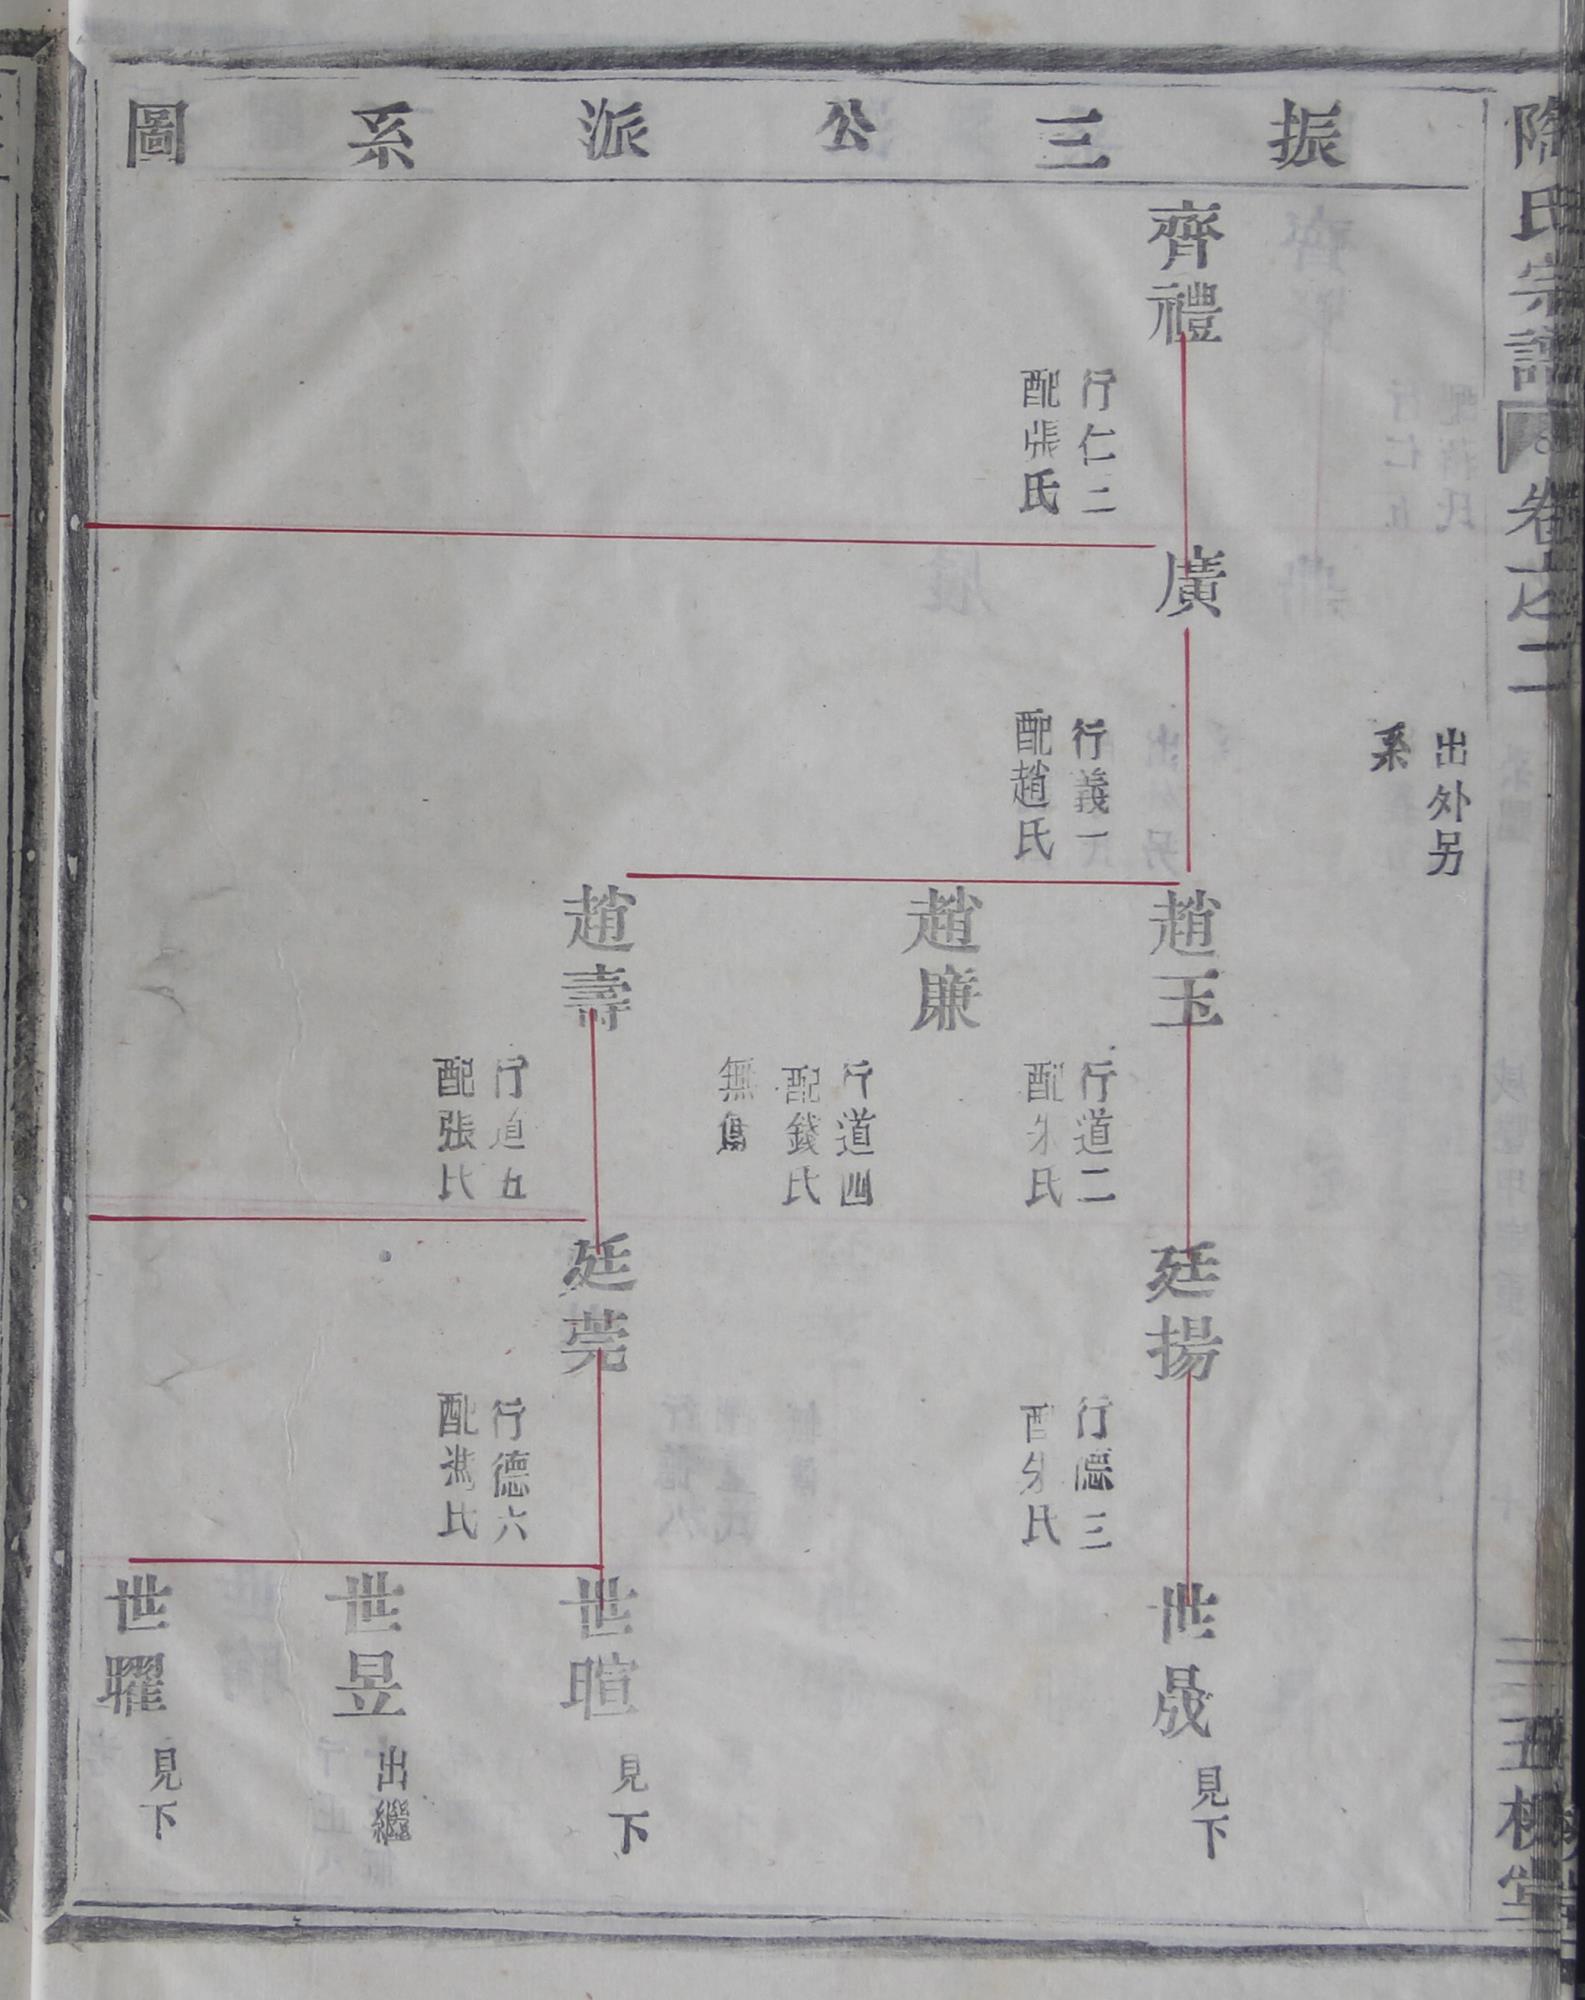 陶氏宗譜
卷之二
五柳堂
振三公派系圖
出外另
系
齊禮
行仁二
配張氏
廣
行義一
配趙氏
趙玉
行道二
配朱氏
趙廉
行道四
配錢氏
無傳
趙壽
行道五
配張氏
廷揚
行德三
配朱氏
廷莞
行德六
配馮氏
世晟
見下
世暄
見下
世昱
出繼
世曜
見下